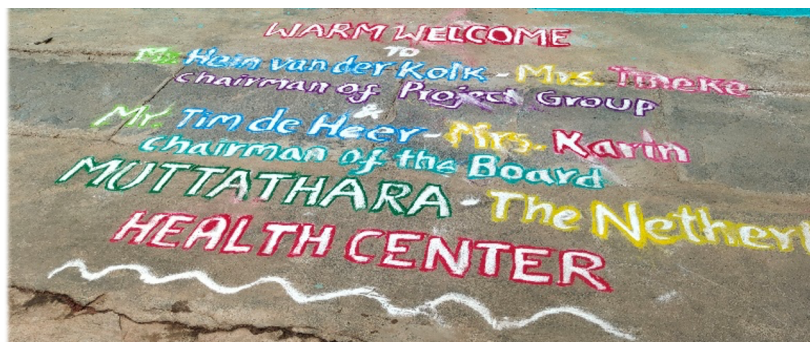 WARM WELCOME
TO
Mr. Hein van der Kolk - Mrs. Tineke
chairman of Project Group
&
Mr Tim de Heer - Mrs. Karin
chairman of the Board
MUTTATHARA - The Netherl
HEALTH CENTER